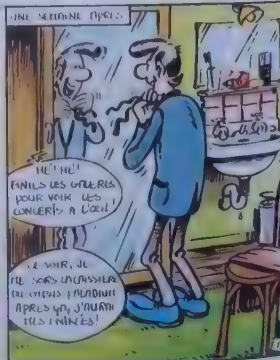 UNE SEMAINE APRES
HE! HE!
FINIS LES GALERES
POUR VOIR LES
CONCERTS A L'OEIL!
CE SOIR, JE
ME SORS LA CAISSIERE
DU
APRES ÇA, J'AURAI
MES ENTREES!